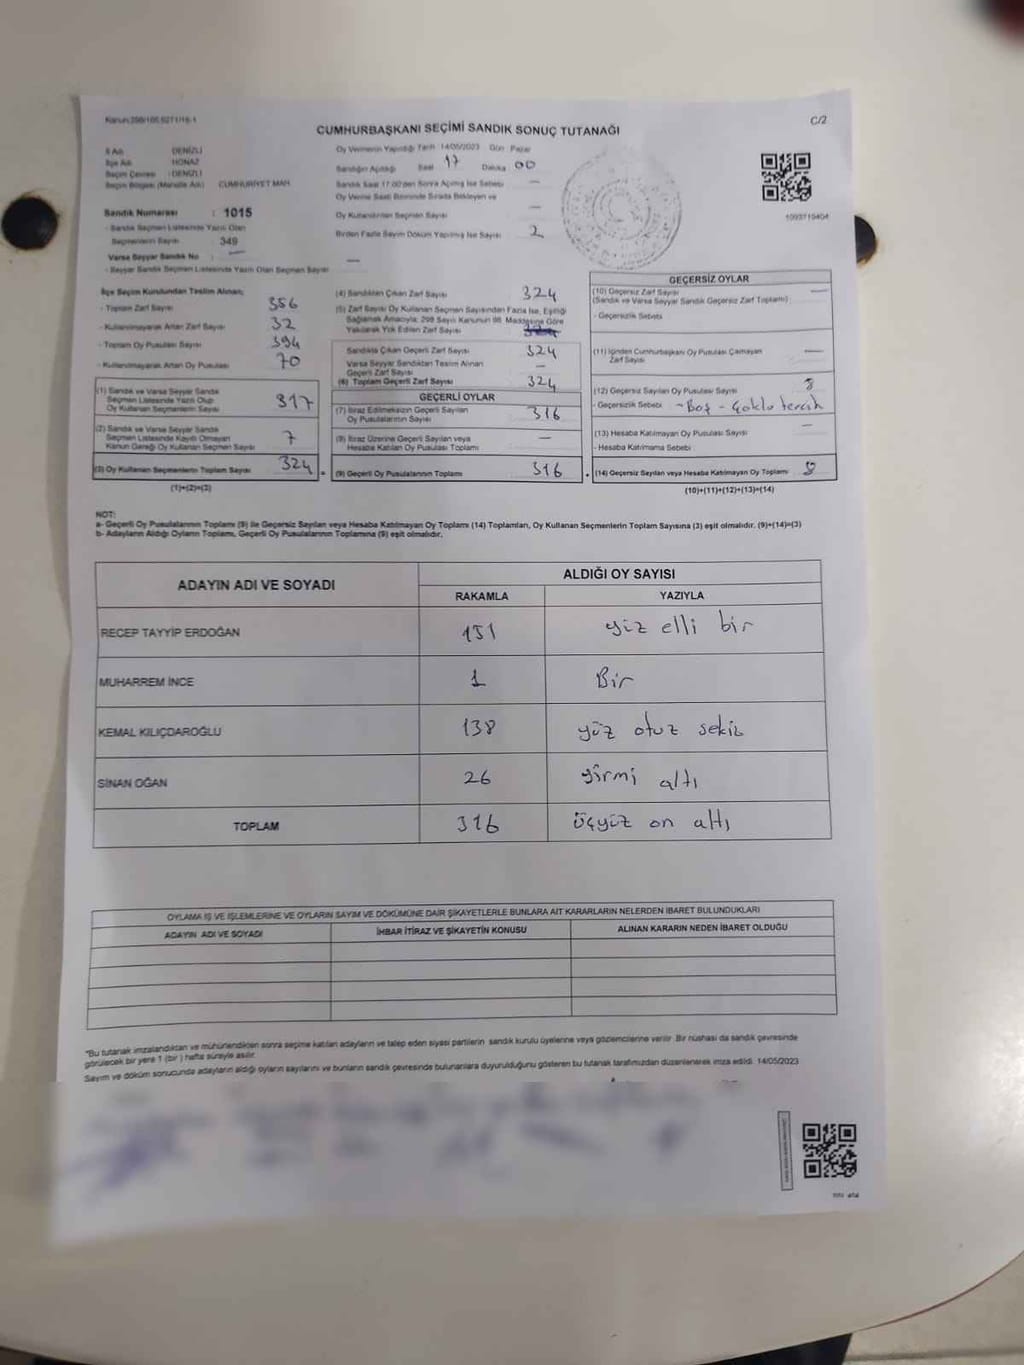 Kanun:298/105,6271/16-1
C/2
CUMHURBAŞKANI SEÇİMİ SANDIK SONUÇ TUTANAĞI
İl Adı : DENİZLİ
İlçe Adı : HONAZ
Seçim Çevresi : DENİZLİ
Seçim Bölgesi (Mahalle Adı) : CUMHURİYET MAH.
Sandık Numarası : 1015
- Sandık Seçmen Listesinde Yazılı Olan
Seçmenlerin Sayısı : 349
Varsa Seyyar Sandık No : —
- Seyyar Sandık Seçmen Listesinde Yazılı Olan Seçmen Sayısı —
Oy Vermenin Yapıldığı Tarih 14/05/2023 Gün Pazar
Sandığın Açıldığı Saat 17 Dakika 00
Sandık Saat 17.00'den Sonra Açılmış İse Sebebi —
Oy Verme Saati Bitiminde Sırada Bekleyen ve
Oy Kullandırılan Seçmen Sayısı —
Birden Fazla Sayım Döküm Yapılmış İse Sayısı 2
1093719404
İlçe Seçim Kurulundan Teslim Alınan;
- Toplam Zarf Sayısı 356
- Kullanılmayarak Artan Zarf Sayısı 32
- Toplam Oy Pusulası Sayısı 394
- Kullanılmayarak Artan Oy Pusulası 70
(1) Sandık ve Varsa Seyyar Sandık
Seçmen Listesinde Yazılı Olup
Oy Kullanan Seçmenlerin Sayısı 317
(2) Sandık ve Varsa Seyyar Sandık
Seçmen Listesinde Kayıtlı Olmayan
Kanun Gereği Oy Kullanan Seçmen Sayısı 7
(3) Oy Kullanan Seçmenlerin Toplam Sayısı 324
(1)+(2)=(3)
(4) Sandıktan Çıkan Zarf Sayısı 324
(5) Zarf Sayısı Oy Kullanan Seçmen Sayısından Fazla İse, Eşitliği
Sağlamak Amacıyla; 298 Sayılı Kanunun 98. Maddesine Göre
Yakılarak Yok Edilen Zarf Sayısı
Sandıkta Çıkan Geçerli Zarf Sayısı 324
Varsa Seyyar Sandıktan Teslim Alınan
Geçerli Zarf Sayısı —
(6) Toplam Geçerli Zarf Sayısı 324
GEÇERLİ OYLAR
(7) İtiraz Edilmeksizin Geçerli Sayılan
Oy Pusulalarının Sayısı 316
(8) İtiraz Üzerine Geçerli Sayılan veya
Hesaba Katılan Oy Pusulası Toplamı —
(9) Geçerli Oy Pusulalarının Toplamı 316
GEÇERSİZ OYLAR
(10) Geçersiz Zarf Sayısı —
(Sandık ve Varsa Seyyar Sandık Geçersiz Zarf Toplamı)
- Geçersizlik Sebebi
(11) İçinden Cumhurbaşkanı Oy Pusulası Çıkmayan
Zarf Sayısı —
(12) Geçersiz Sayılan Oy Pusulası Sayısı 8
- Geçersizlik Sebebi - Boş - Çoklu tercih
(13) Hesaba Katılmayan Oy Pusulası Sayısı —
- Hesaba Katılmama Sebebi
(14) Geçersiz Sayılan veya Hesaba Katılmayan Oy Toplamı 8
(10)+(11)+(12)+(13)=(14)
NOT:
a- Geçerli Oy Pusulalarının Toplamı (9) ile Geçersiz Sayılan veya Hesaba Katılmayan Oy Toplamı (14) Toplamları, Oy Kullanan Seçmenlerin Toplam Sayısına (3) eşit olmalıdır. (9)+(14)=(3)
b- Adayların Aldığı Oyların Toplamı, Geçerli Oy Pusulalarının Toplamına (9) eşit olmalıdır.
ADAYIN ADI VE SOYADI
ALDIĞI OY SAYISI
RAKAMLA YAZIYLA
RECEP TAYYİP ERDOĞAN 151 yüz elli bir
MUHARREM İNCE 1 Bir
KEMAL KILIÇDAROĞLU 138 yüz otuz sekiz
SİNAN OĞAN 26 yirmi altı
TOPLAM 316 üçyüz on altı
OYLAMA İŞ VE İŞLEMLERİNE VE OYLARIN SAYIM VE DÖKÜMÜNE DAİR ŞİKAYETLERLE BUNLARA AİT KARARLARIN NELERDEN İBARET BULUNDUKLARI
ADAYIN ADI VE SOYADI İHBAR İTİRAZ VE ŞİKAYETİN KONUSU ALINAN KARARIN NEDEN İBARET OLDUĞU
*Bu tutanak imzalandıktan ve mühürlendikten sonra seçime katılan adayların ve talep eden siyasi partilerin sandık kurulu üyelerine veya gözlemcilerine verilir. Bir nüshası da sandık çevresinde
görülecek bir yere 1 (bir) hafta süreyle asılır.
Sayım ve döküm sonucunda adayların aldığı oyların sayılarını ve bunların sandık çevresinde bulunanlara duyurulduğunu gösteren bu tutanak tarafımızdan düzenlenerek imza edildi. 14/05/2023